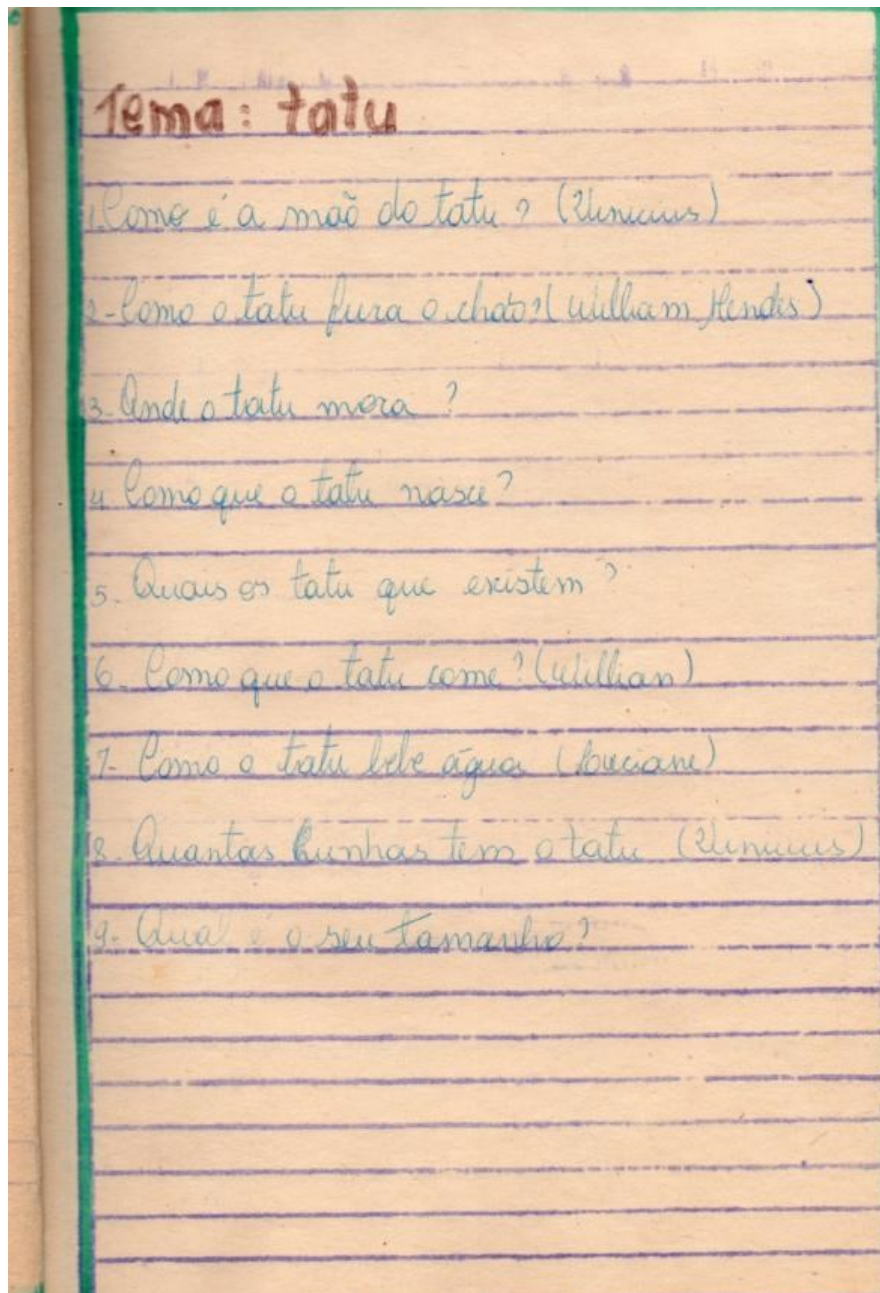 Tema: tatu
1. Como é a mão do tatu? (Vinicius)
2- Como o tatu fura o chão? (William Mendes)
3- Onde o tatu mora?
4 Como que o tatu nasce?
5- Quais os tatu que existem?
6- Como que o tatu come? (Willian)
7- Como o tatu bebe água (Luciane)
8- Quantas hunhas tem o tatu (Vinicius)
9- Qual é o seu tamanho?